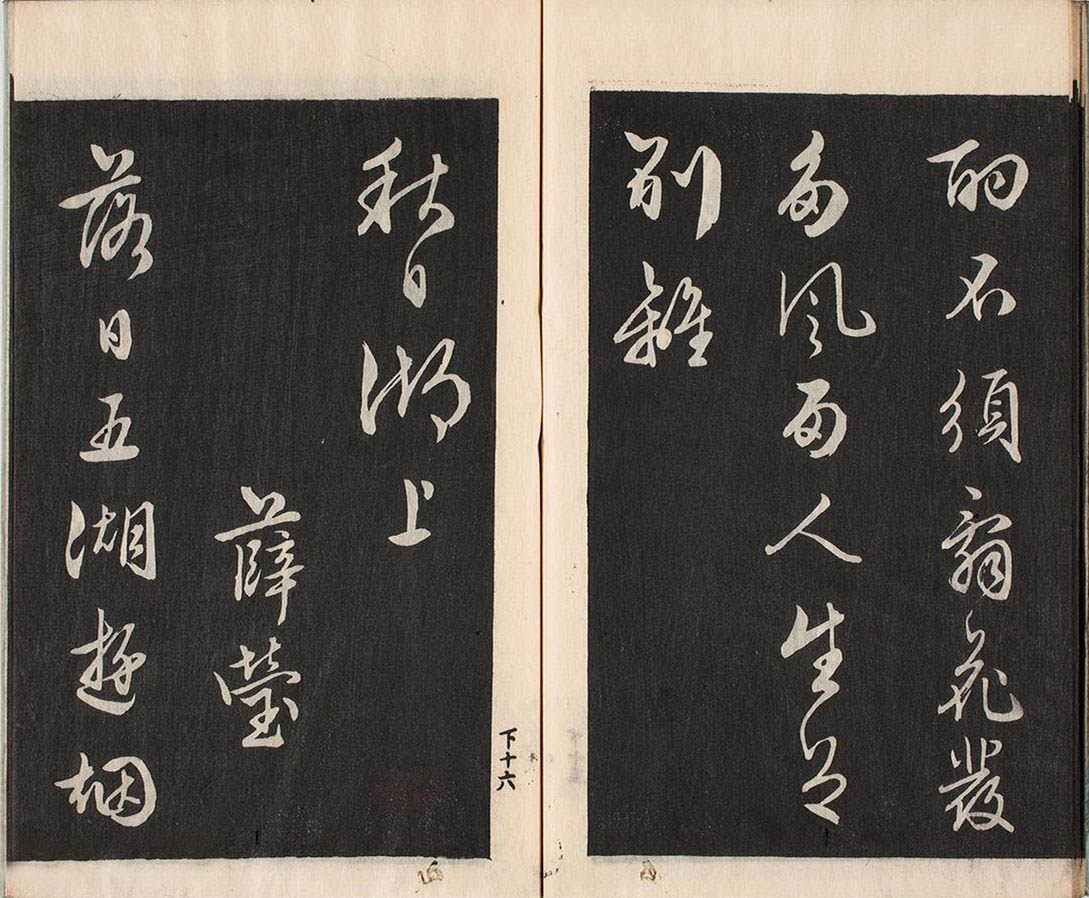 酌不須辭花發
多風雨人生足
別離
秋日湖上
薛瑩
落日五湖遊烟
下十六
16